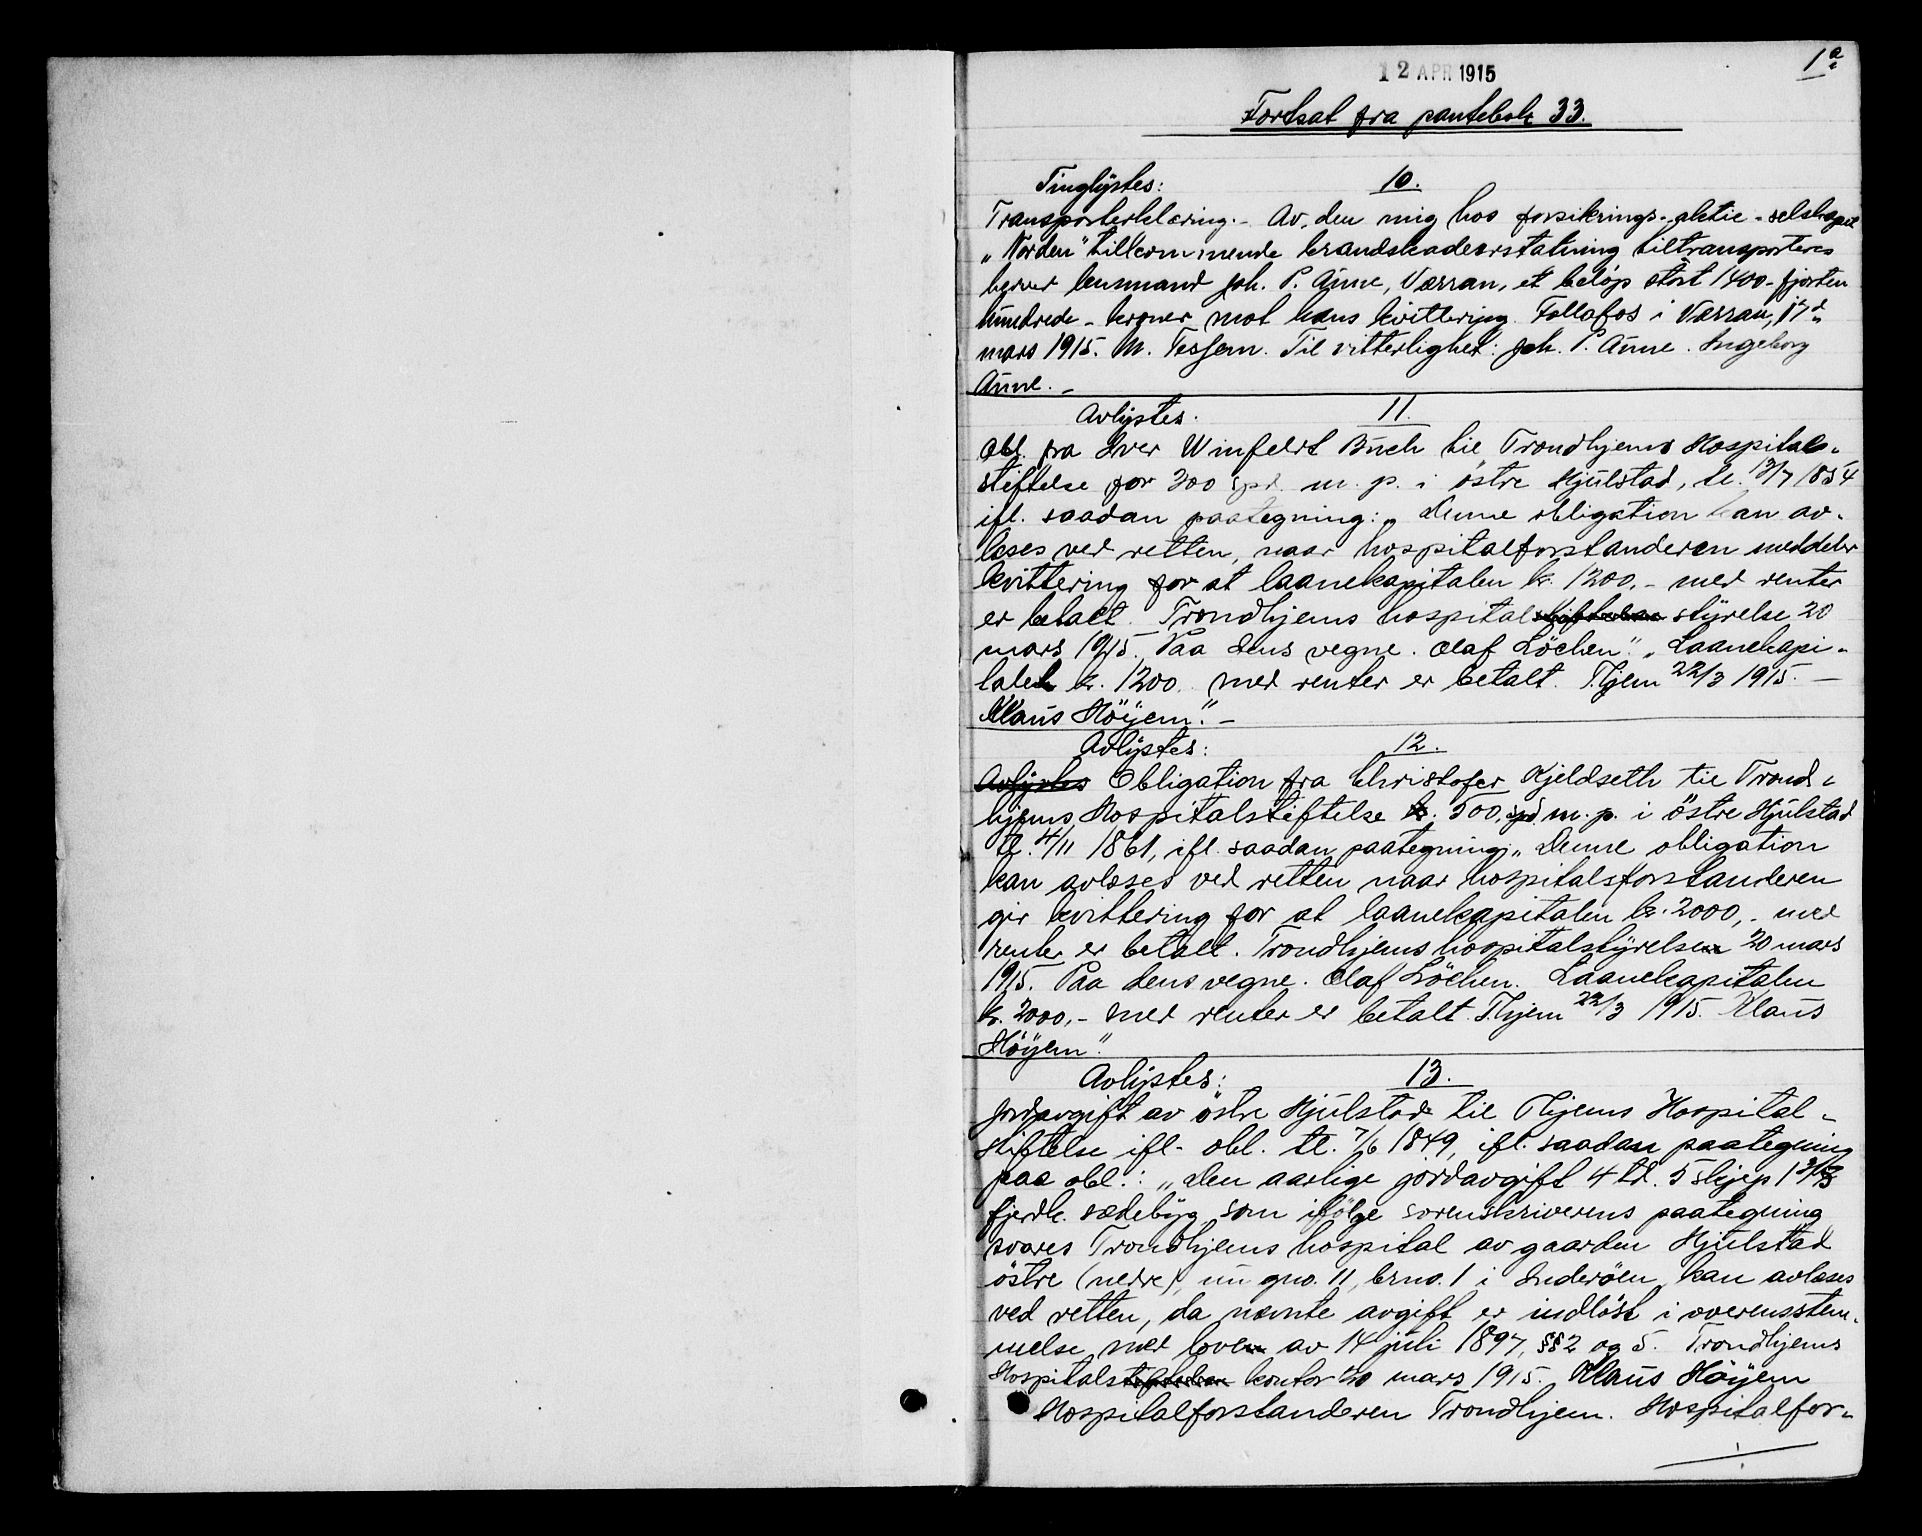 1a
12 APR 1915
Fortsat fra pantebok 33.
Tinglystes: 10.
Transporterklæring. - Av den mig hos forsikrings-aktie-selskapet
„Norden" tilkommende brandskadeerstatning tiltransporteres
herved lensmand Joh. P. Aune, Værran, et beløp stort 1400 - fjorten
hundrede - kroner mot hans kvittering. Follafos i Værran, 17d
mars 1915. M. Tessem. Til vitterlighet: Joh. P. Aune. Ingeborg
Aune. -
Avlystes. 11.
Obl. fra Iver Winfeldt Buch til Trondhjems Hospitals-
stiftelse for 300 spd. m. p. i östre Hjulstad, tl. 13/7 1854
ifl. saadan paategning: „Denne obligation kan av-
læses ved retten, naar hospitalforstanderen meddeler
kvittering for at laanekapitalen kr. 1200.- med renter
er betalt. Trondhjems hospitalstyrelse 20
mars 1915. Paa dens vegne. Olaf Löchen." „Laanekapi-
talen kr. 1200. med renter er betalt. T.hjem 22/3 1915. -
Klaus Höyem." -
Avlystes: 12.
Avlystes Obligation fra Christofer Kjeldseth til Trond-
hjems Hospitalstiftelse kr. 500, spd. m. p. i östre Hjulstad
tl. 4/11 1861, ifl. saadan paategning: „Denne obligation
kan avlæses ved retten naar hospitalsforstanderen
gir kvittering for at laanekapitalen kr. 2000,- med
renter er betalt. Trondhjems hospitalstyrelse 20 mars
1915. Paa dens vegne. Olaf Löchen. Laanekapitalen
kr. 2000,- med renter er betalt. T.hjem 22/3 1915. Klaus
Höyem".
Avlystes: 13.
Jordavgift av östre Hjulstad til T.hjems Hospital-
stiftelse ifl. obl. tl. 7/6 1849, ifl. saadan paategning
paa obl.: „Den aarlige jordavgift 4 td. 5 skjep 1
fjerdk. sædebyg som ifölge sorenskriverens paategning
svares Trondhjems hospital av gaarden Hjulstad
östre (nedre), nu gno. 11, brno. 1 i Inderöen, kan avlæses
ved retten, da nævnte avgift er indlöst i overensstem-
melse med loven av 14 juli 1897, §§ 2 og 5. Trondhjems
Hospitals kontor 20 mars 1915. Klaus Höyem
Hospitalforstanderen Trondhjem. Hospitalfor-